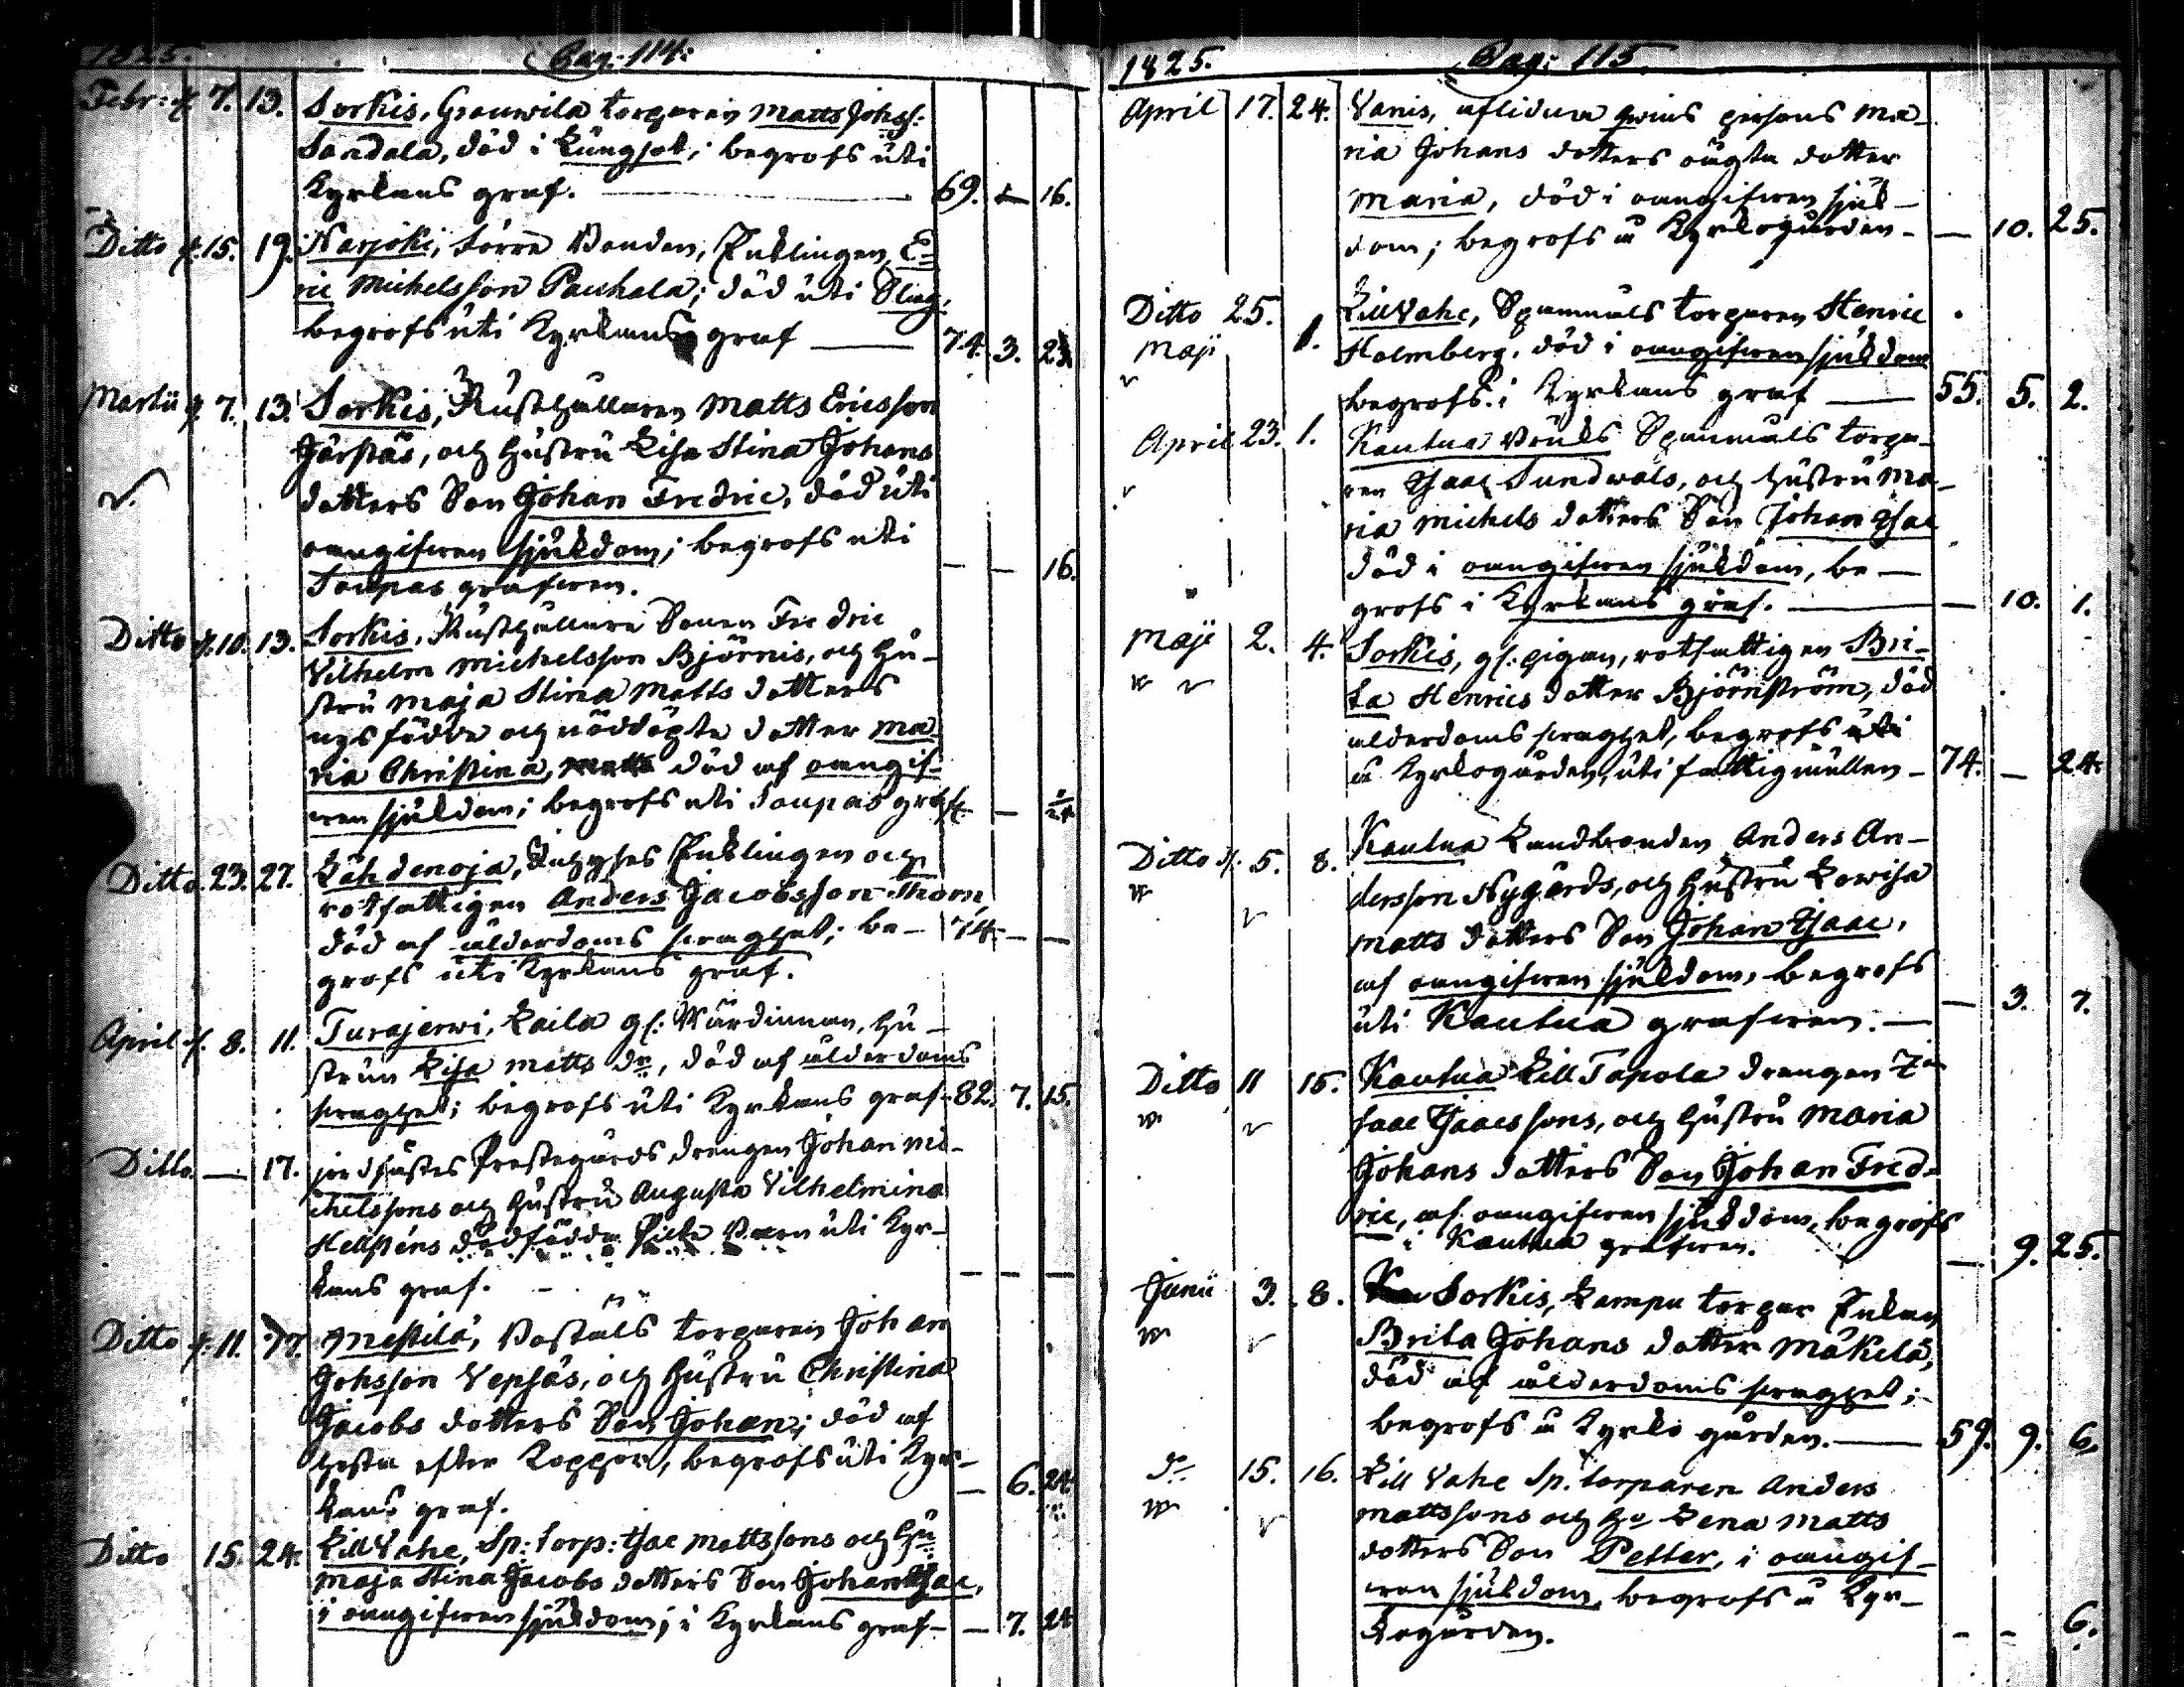 1825.
Pag: 114:
Febr: d. 7. 13. Sorkis, Grauwila torparen Matts Johss:
Sandala, död i Lungsot; begrofs uti
Kyrkans graf. — 69. — 16.
Ditto d. 15. 19. Narjoki, förre Bonden, Enklingen E-
ric Michelsson Pauhala; död uti Slag,
begrofs uti Kyrkans graf — 74. 3. 23.
Martii d. 7. 13. Sorkis, Rusthållaren Matts Ericsson
, och hustru Lisa Stina Johans
dotters Son Johan Fredric, död uti
oangifwen sjukdom; begrofs uti
Soupas grafwen. — — 16.
Ditto d. 10. 13. Sorkis, Rusthållare Sonen Fredric
Vilhelm Michelsson Björnis, och hu-
stru Maja Stina Matts dotters
nysfödde och nöddöpte dotter Ma
ria Christina, död af oangif-
wen sjukdom; begrofs uti Soupas
Ditto. 23. 27. Lähdenoja, Enklingen och
rotfattigen Anders Jacobsson Thorn,
död af ålderdoms swaghet; be- 74. — —
grofs uti Kyrkans graf.
April d. 8. 11. Turajerwi, Laila gl: Wärdinnan, hu-
strun Lisa Matts dr, död af ålderdoms
swaghet; begrofs uti Kyrkans graf- 82. 7. 15.
Ditto — 17. jordfästes Prestegårds drengen Johan Mi-
chelssons och hustru Augusta Vilhelmina
Hellsténs dödfödda Barn uti Kyr-
kans graf. — — —
Ditto d. 11. 17. Mestilä, Boställs torparen Johan
Johsson Vepsäs, och hustru Christina
Jacobs dotters Son Johan; död af
efter Koppor, begrofs uti Kyr- — 6. 24.
kans graf.
Ditto 15. 24. Lill Vahe, Sp: torp: Isac Mattssons och hu
Maja Stina Jacobs dotters Son Johan Isac,
i oangifwen sjukdom; i Kyrkans graf- — 7. 24
1825.
Pag: 115
April 17. 24. Vanis, aflidna qwins persons Ma-
ria Johans dotters oägta dotter
Maria, död i oangifwen sjuk-
dom; begrofs å Kyrkogården- — 10. 25.
Ditto 25.
Maji 1. Lill Vahe, Spanmåls torparen Henric
Holmberg, död i oangifwen sjukdom
begrofs i Kyrkans graf — 55. 5. 2.
April 23. 1. Kautua Bruks Spanmåls torpa-
ren Isaac Sundwals, och hustru Ma-
ria Michels dotters Son Johan Isac
död i oangifwen sjukdom, be-
grofs i Kyrkans graf. — — 10. 1.
Maji 2. 4. Sorkis, gl: pigan, rotfattigen Bri-
ta Henrics dotter Björnström, död
ålderdoms swaghet, begrofs uti
å Kyrkogården, uti fattigmullen- 74. — 24.
Ditto d. 5. 8. Kautua Landbonden Anders An-
dersson Nygårds, och hustru Lowisa
Matts dotters Son Johan Isaac,
af oangifwen sjukdom, begrofs
uti Kautua grafwen. — — 3. 7.
Ditto 11 15. Kautua Lill Tapola drengen I-
saac Isaacssons, och hustru Maria
Johans dotters Son Johan Fred-
ric, af oangifwen sjukdom, begrofs
i Kautua grafwen. — 9. 25.
Junii 3. 8. Sorkis, Lampu torpar Enkan
Brita Johans dotter Mäkelä,
död af ålderdoms swaghet;
begrofs å Kyrko gården. — 59. 9. 6.
do 15. 16. Lill Vahe Sp. torparen Anders
Mattssons och hu Lena Matts
dotters Son Petter, i oangif-
wen sjukdom, begrofs å Kyr-
kogården. — — 6.